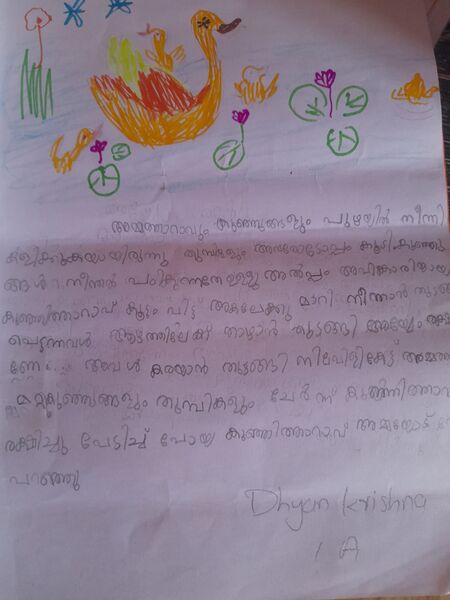 അമ്മത്താറാവും കുഞ്ഞുങ്ങളും പുഴയിൽ നീന്തി
കളിക്കുകയായിരുന്നു തുമ്പികളും അവരോടൊപ്പം കൂടി കുഞ്ഞു
ങ്ങൾ നീന്തൽ പഠിക്കുന്നതേ ഉള്ളു അൽപ്പം അഹങ്കാരിയായ
കുഞ്ഞിത്താറാവ് കൂട്ടം വിട്ട് അകലേക്കു മാറി നീന്താൻ തുടങ്ങി
പെട്ടന്നവൾ ആഴത്തിലേക്ക് താഴാൻ തുടങ്ങി അയ്യോ രക്ഷി
ക്കണേ... അവൾ കരയാൻ തുടങ്ങി നിലവിളികേട്ട് അമ്മത്താ
മറ്റുകുഞ്ഞുങ്ങളും തുമ്പികളും ചേർന്ന് കുഞ്ഞിത്താറാ
രക്ഷിച്ചു പേടിച്ച് പോയ കുഞ്ഞിത്താറാവ് അമ്മയോട്
പറഞ്ഞു
Dhyan Krishna
1 A